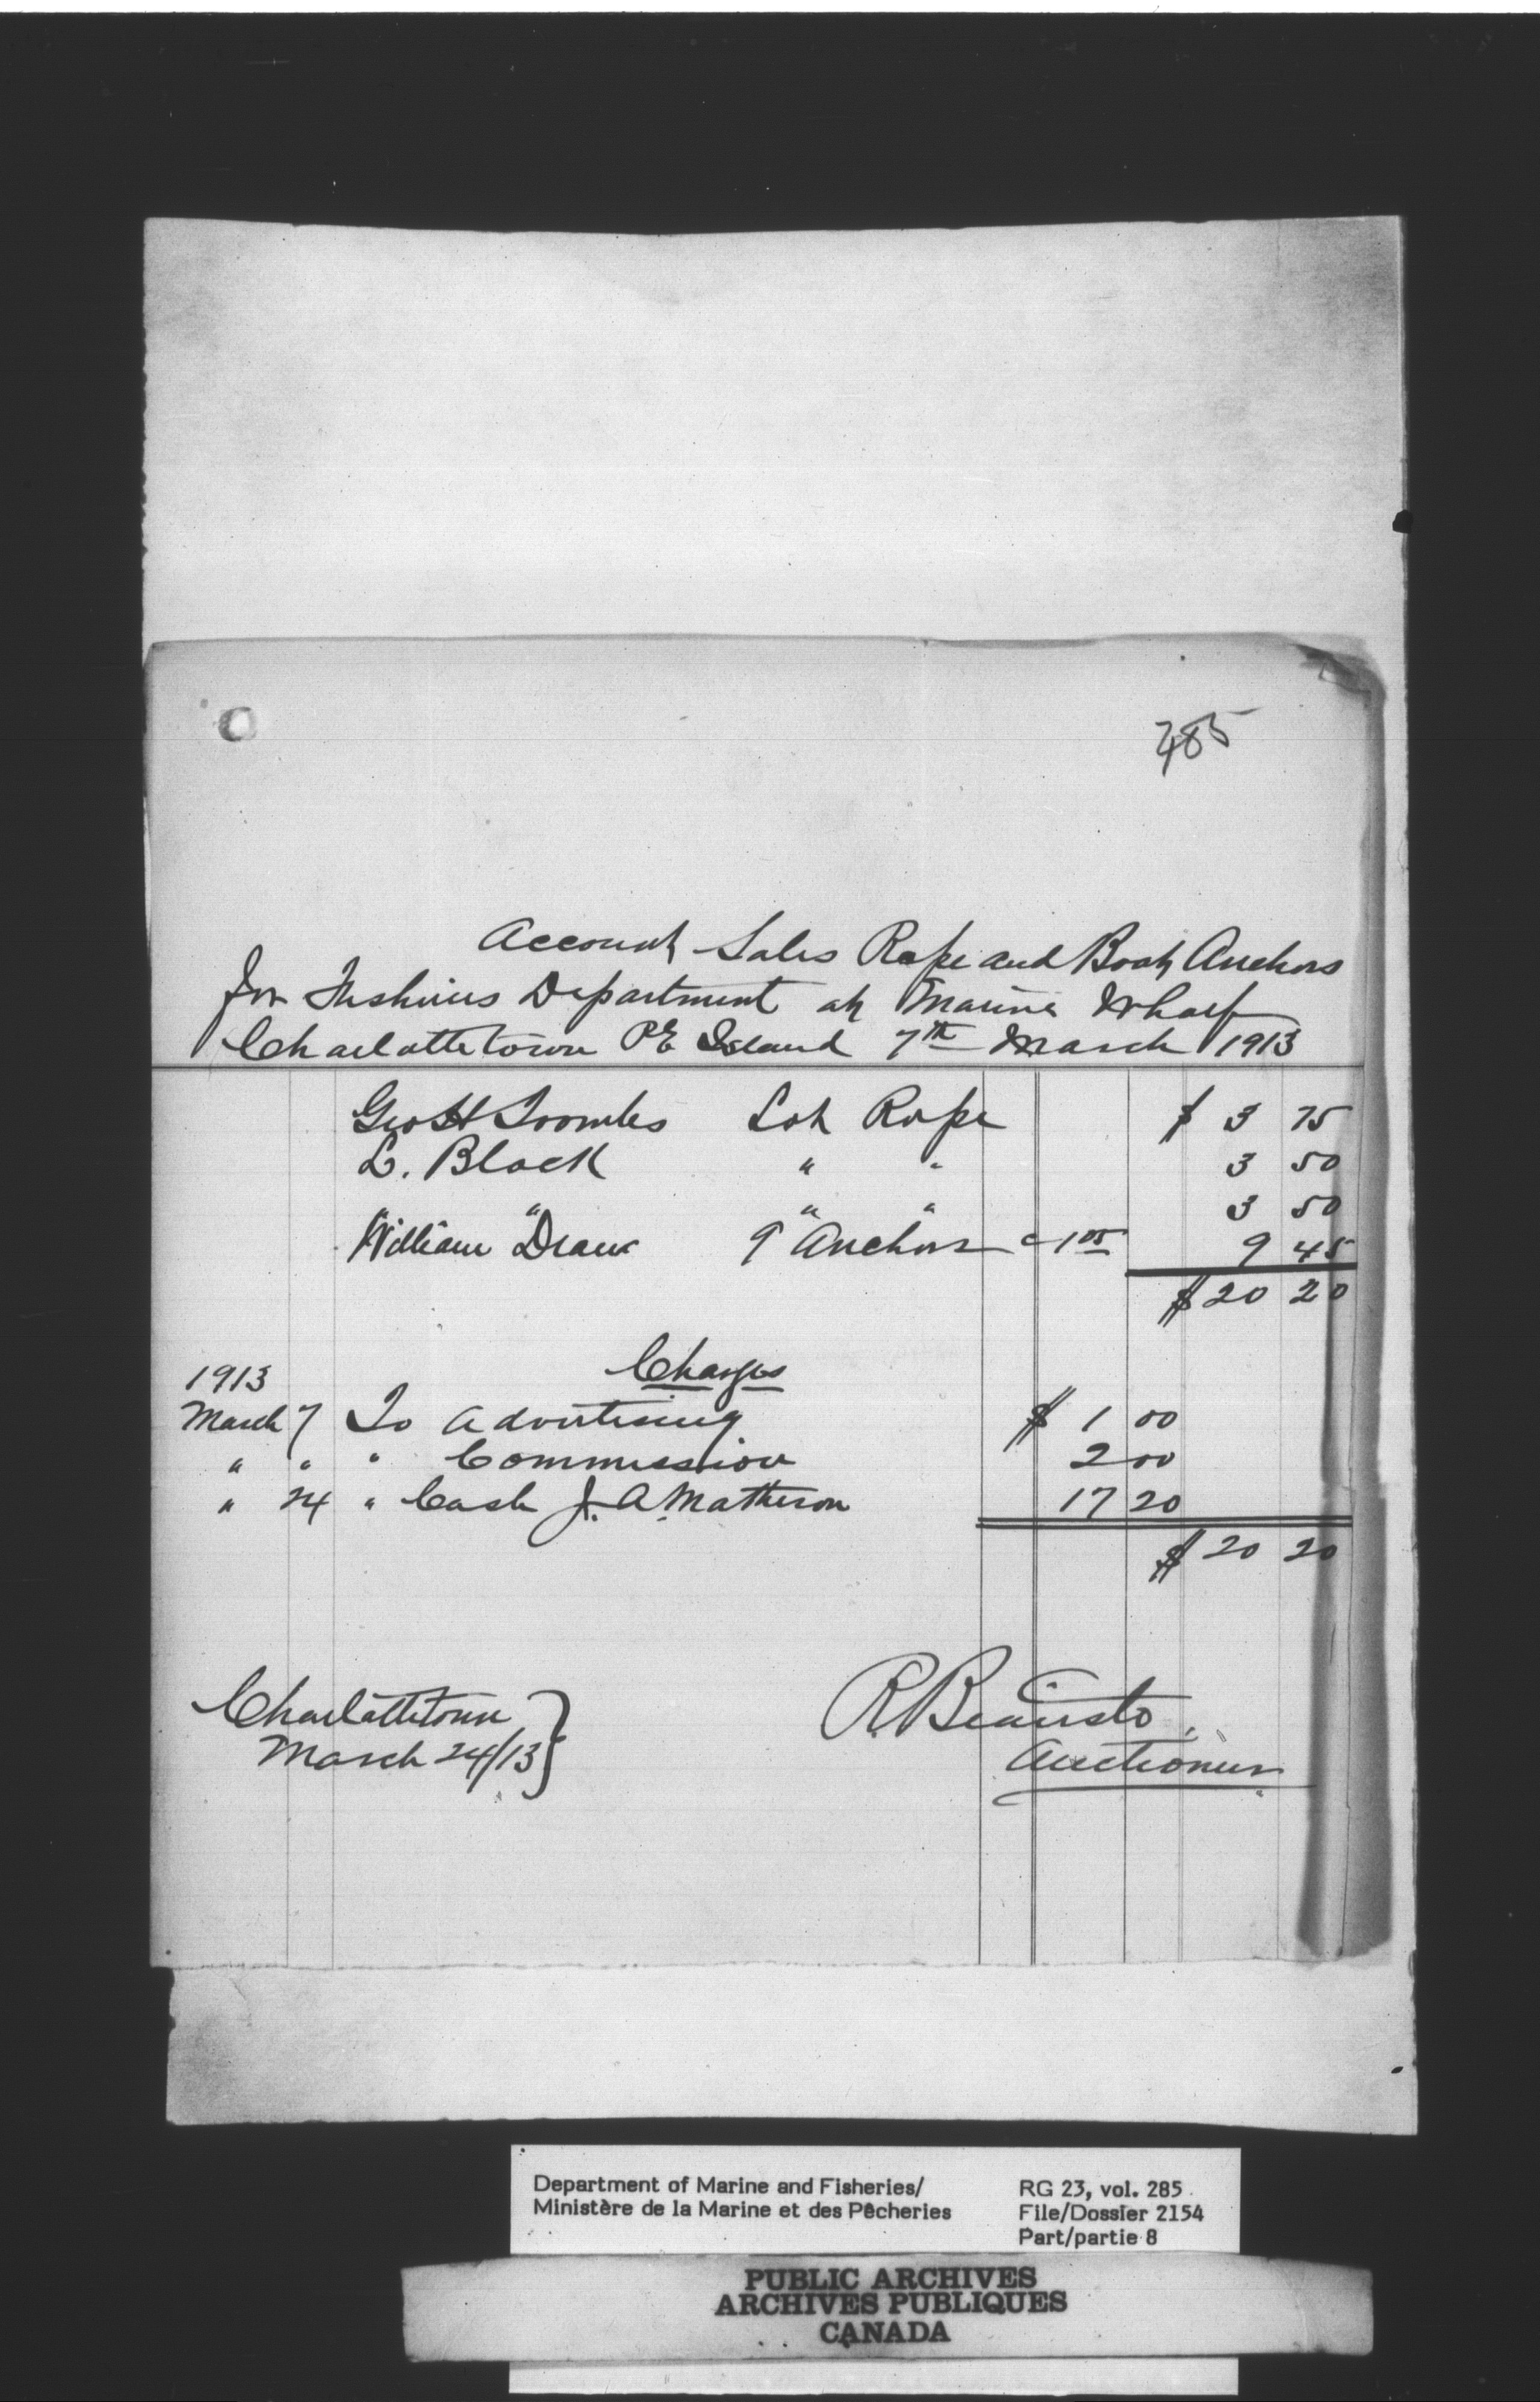 485
Account Sales Rope and Boat Anchors
for Fisheries Department at Marine Wharf
Charlottetown PE Island 7th March 1913
Geo H Toombs Lot Rope $ 3 75
L. Black " " 3 50
" " " " 3 50
William 9 Anchors 1 05 9 45
$ 20 20
Charges
1913
March 7 To Advertising $ 1 00
" " " Commission 2 00
" 24 " Cash J. A. Matheson 17 20
$ 20 20
Charlottetown
March 24/13
R. Beairsto
Auctioneer
Department of Marine and Fisheries/
Ministère de la Marine et des Pêcheries
RG 23, vol. 285
File/Dossier 2154
Part/partie 8
PUBLIC ARCHIVES
ARCHIVES PUBLIQUES
CANADA